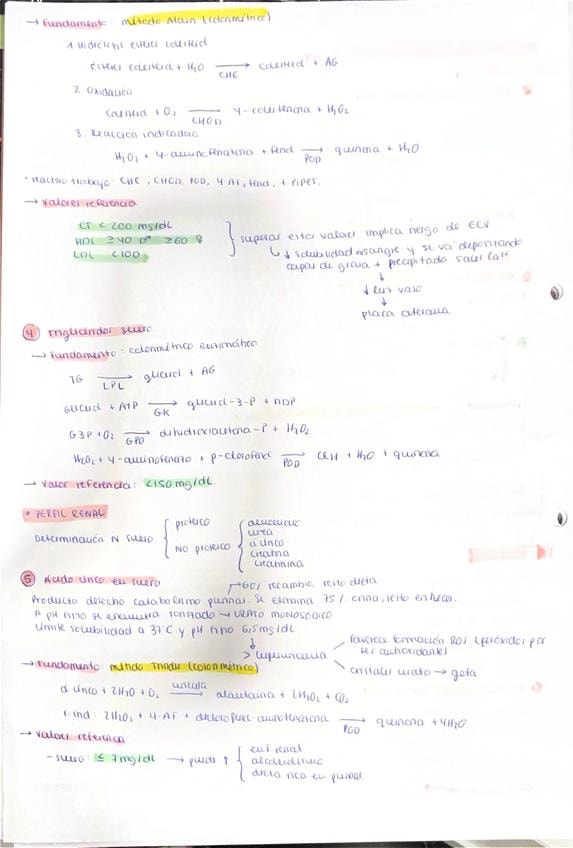 → Fundamento: método Alain (colorimétrico)
1. Hidrólisis ester colesterol
Ester colesterol + H2O → CHE colesterol + AG
2. Oxidación
Colesterol + O2 → CHOD 4-colestenona + H2O2
3. Reacción indicadora
H2O2 + 4-aminofenazona + fenol → POD quinona + H2O
· reactivo trabajo: CHE, CHOD, POD, 4-AF, fenol, + PIPES.
→ Valores referencia
CT < 200 mg/dL
HDL ≥40 ♂ ≥60 ♀
LDL <100
superar estos valores implica riesgo de ECV
↳ ↓ solubilidad en sangre y se va depositando
capas de grasa + precipitado sales Ca++
↓
↓ luz vaso
↓
placa ateroma.
④ Triglicéridos suero
→ Fundamento: colorimétrico enzimático
TG → LPL glicerol + AG
Glicerol + ATP → GK glicerol-3-P + ADP
G3P + O2 → GPO dihidroxiacetona-P + H2O2
H2O2 + 4-aminofenazo + p-clorofenol → POD ClH + H2O + quinona
→ Valor referencia: <150 mg/dL.
• PERFIL RENAL
Determinación N suero
proteico
NO proteico
aminoácidos
urea
á. úrico
creatina
creatinina
⑤ Ácido úrico en suero
60% recambio, resto dieta
Producto desecho catabolismo purinas. Se elimina 75% orina, resto en heces.
A pH fisio se encuentra ionizado → URATO MONOSÓDICO
Límite solubilidad a 37°C y pH fisio 6,5 mg/dL
↓
> hiperuricemia
favorece formación ROS (peróxidos por
ser antioxidante)
cristales urato → gota
→ Fundamento: método Trinder (colorimétrico)
á úrico + 2H2O + O2 → uricasa alantoína + 2H2O2 + CO2
r. ind: 2H2O2 + 4-AF + diclorofenol-aminofenazona → POD quinona + 4H2O
→ Valores referencia
- suero: ≤ 7 mg/dL → puede ↑
enf renal
alcoholismo
dieta rica en purinas.